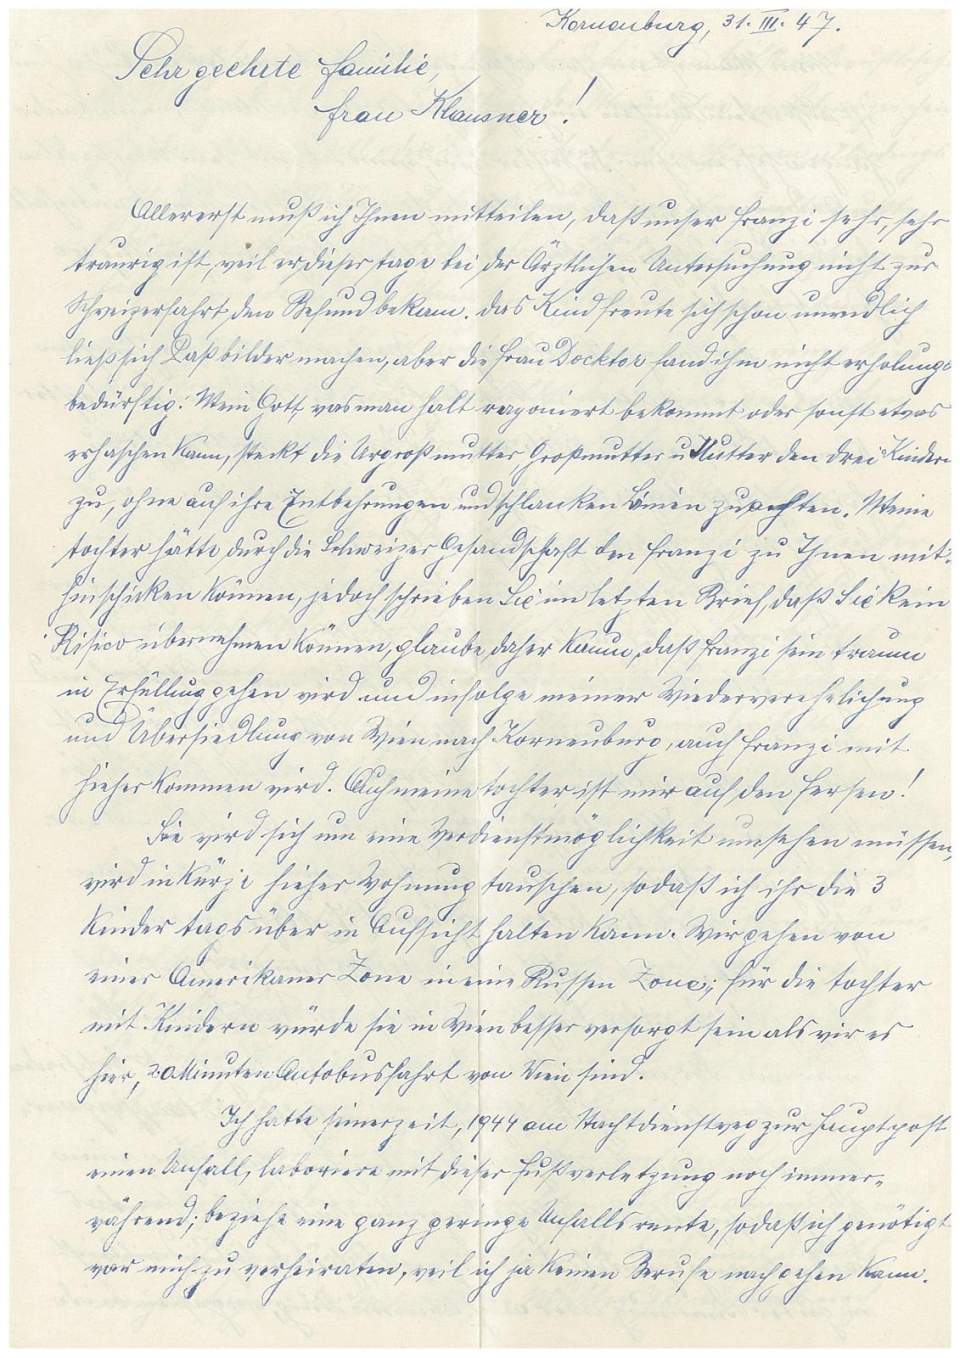 Korneuburg, 31. III. 47.
Sehr geehrte Familie,
Frau Klausner!
Allererst muß ich Ihnen mitteilen, daß unser Franzi sehr, sehr
traurig ist, weil er dieser tage bei der Ärztlichen Untersuchung nicht zur
Schweizerfahrt, den Befund bekam. das Kind freute sich schon unendlich
ließ sich Paßbilder machen, aber die Frau Docktor fand ihm nicht erholungs
bedürftig! Mein Gott, was man halt ragoniert bekommt oder sonst etwas
erhaschen kann, steckt die Urgroßmutter, Großmutter u Mutter den drei Kindern
zu, ohne auf ihre Entbehrungen und schlanken Linien zu achten. Meine
tochter hätte durch die Schweizer Gesandschaft den Franzi zu Ihnen mit-
hinschicken können, jedoch schrieben Sie im letzten Brief, daß Sie kein
Risico übernehmen können, glaube daher kaum, daß Franzi sein traum
in Erfüllung gehen wird und infolge meiner Wiederverehelichung
und Übersiedlung von Wien nach Korneuburg, auch Franzi mit
hieher kommen wird. Auch meine tochter ist mir auf den Fersen!
Sie wird sich um eine Verdienstmöglichkeit umsehen müssen,
wird in Kürze hieher Wohnung tauschen, sodaß ich ihr die 3
Kinder tags über in Aufsicht halten kann. Wir gehen von
einer Amerikaner Zone in eine Russen Zone; für die tochter
mit Kindern würde sie in Wien besser versorgt sein als wir es
hier, 20 Minuten Autobusfahrt von Wien sind.
Ich hatte seinerzeit, 1944 am Nachtdienstweg zur Hauptpost
einen Unfall, laboriere mit dieser Fußverletzung noch immer-
während; beziehe eine ganz geringe Unfallsrente, sodaß ich genötigt
war mich zu verheiraten, weil ich ja keinen Berufe nachgehen kann.